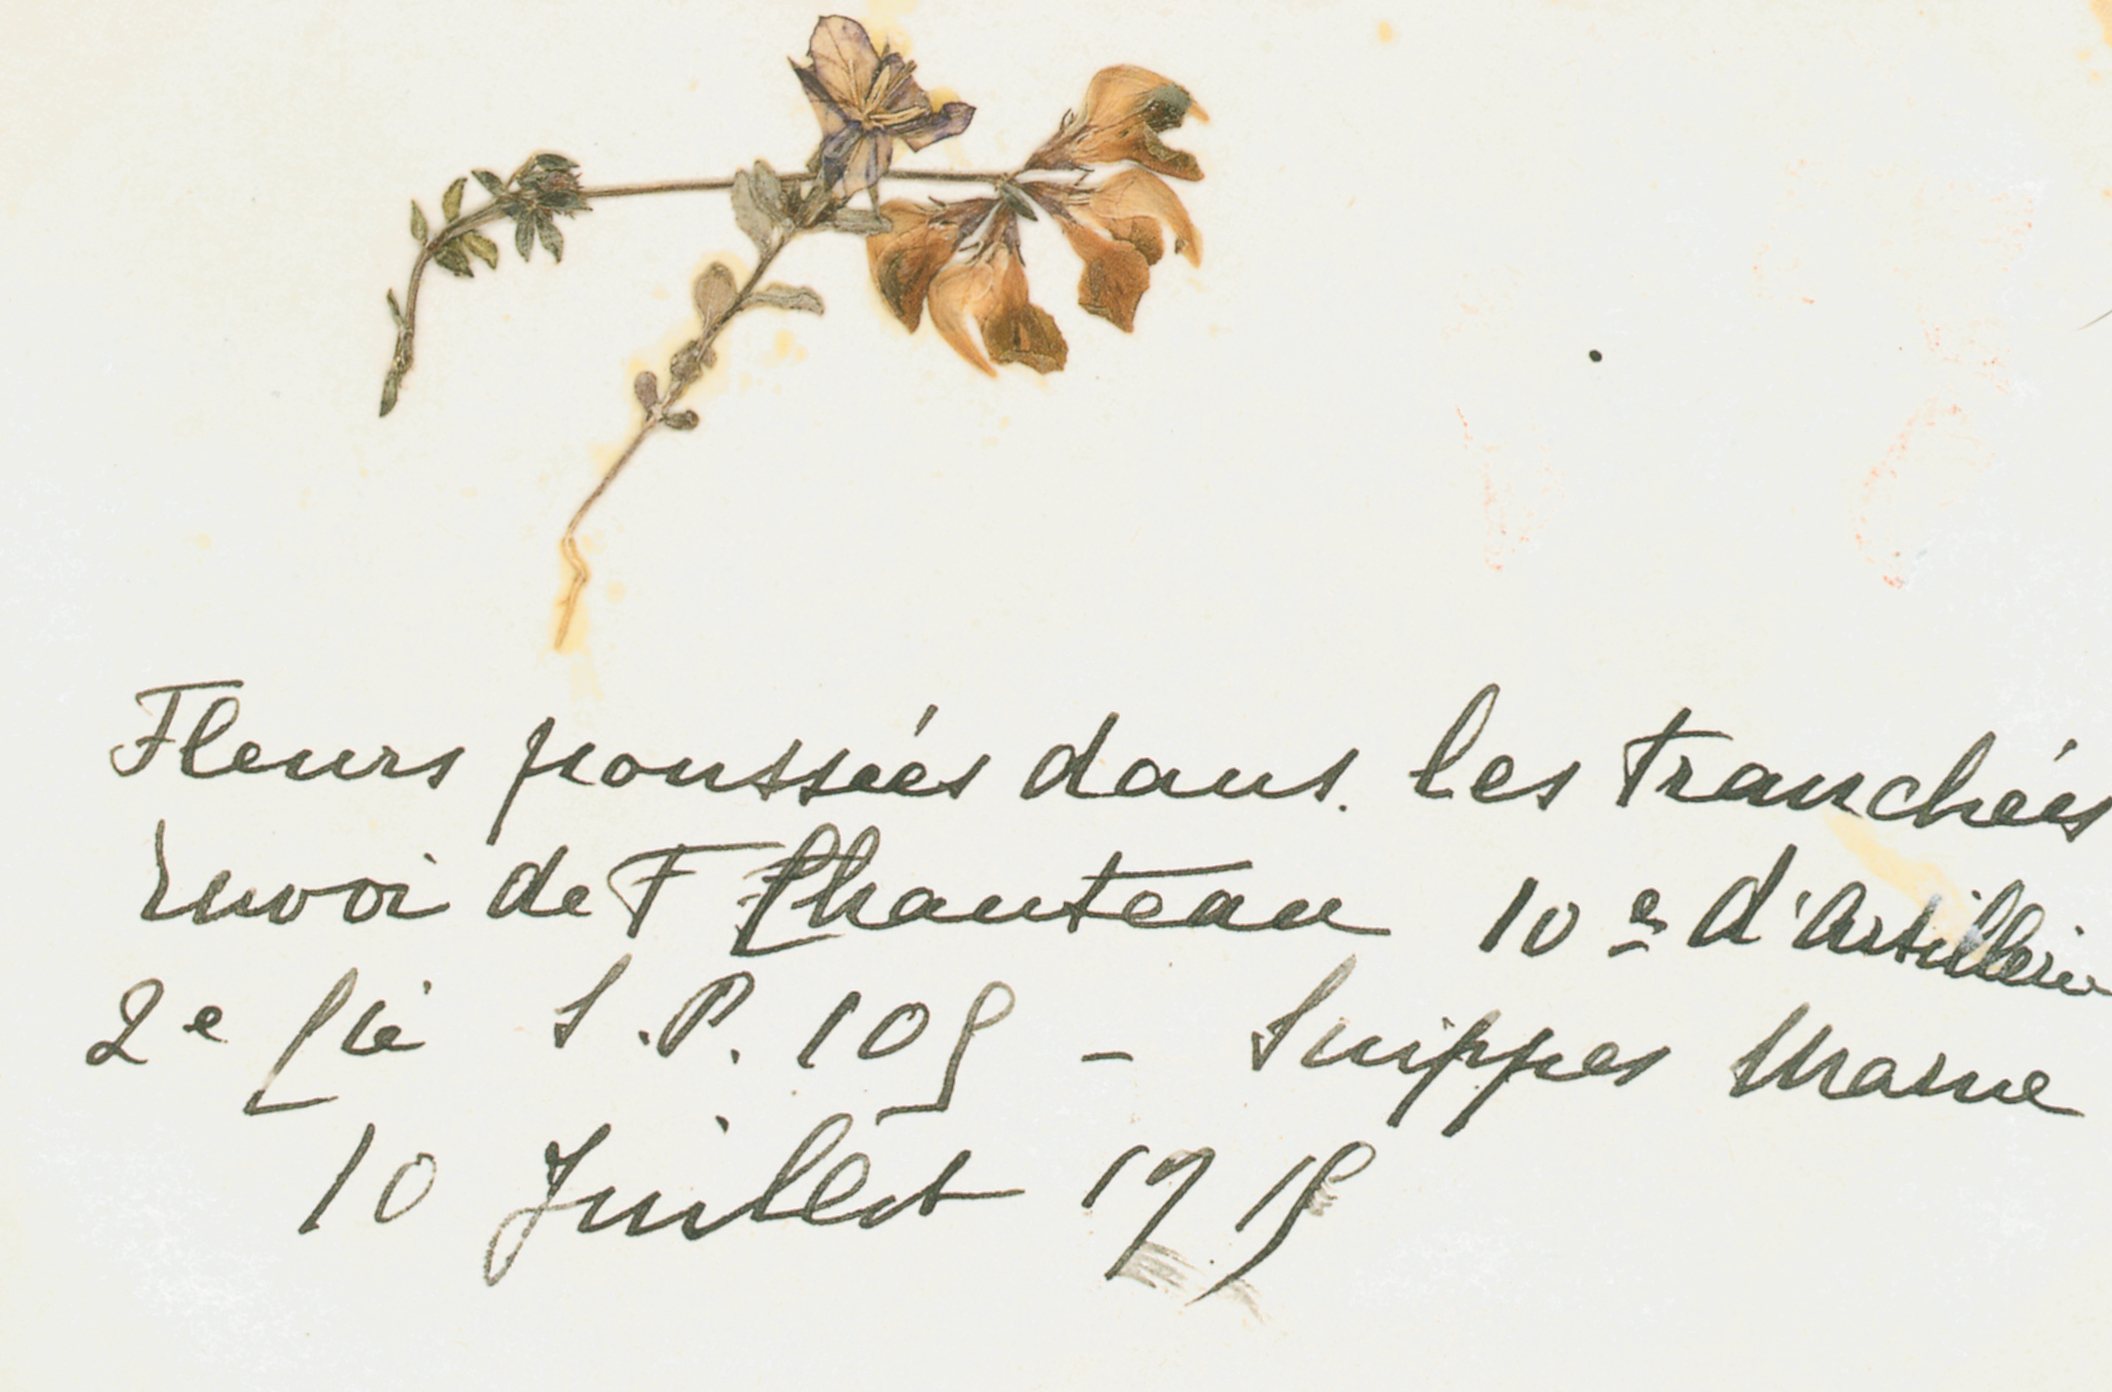 Fleurs poussées dans les tranchées
Envoi de F Chanteau 10e d'Artillerie
2e Cie S.P. 109 - Suippes Marne
10 Juillet 1915